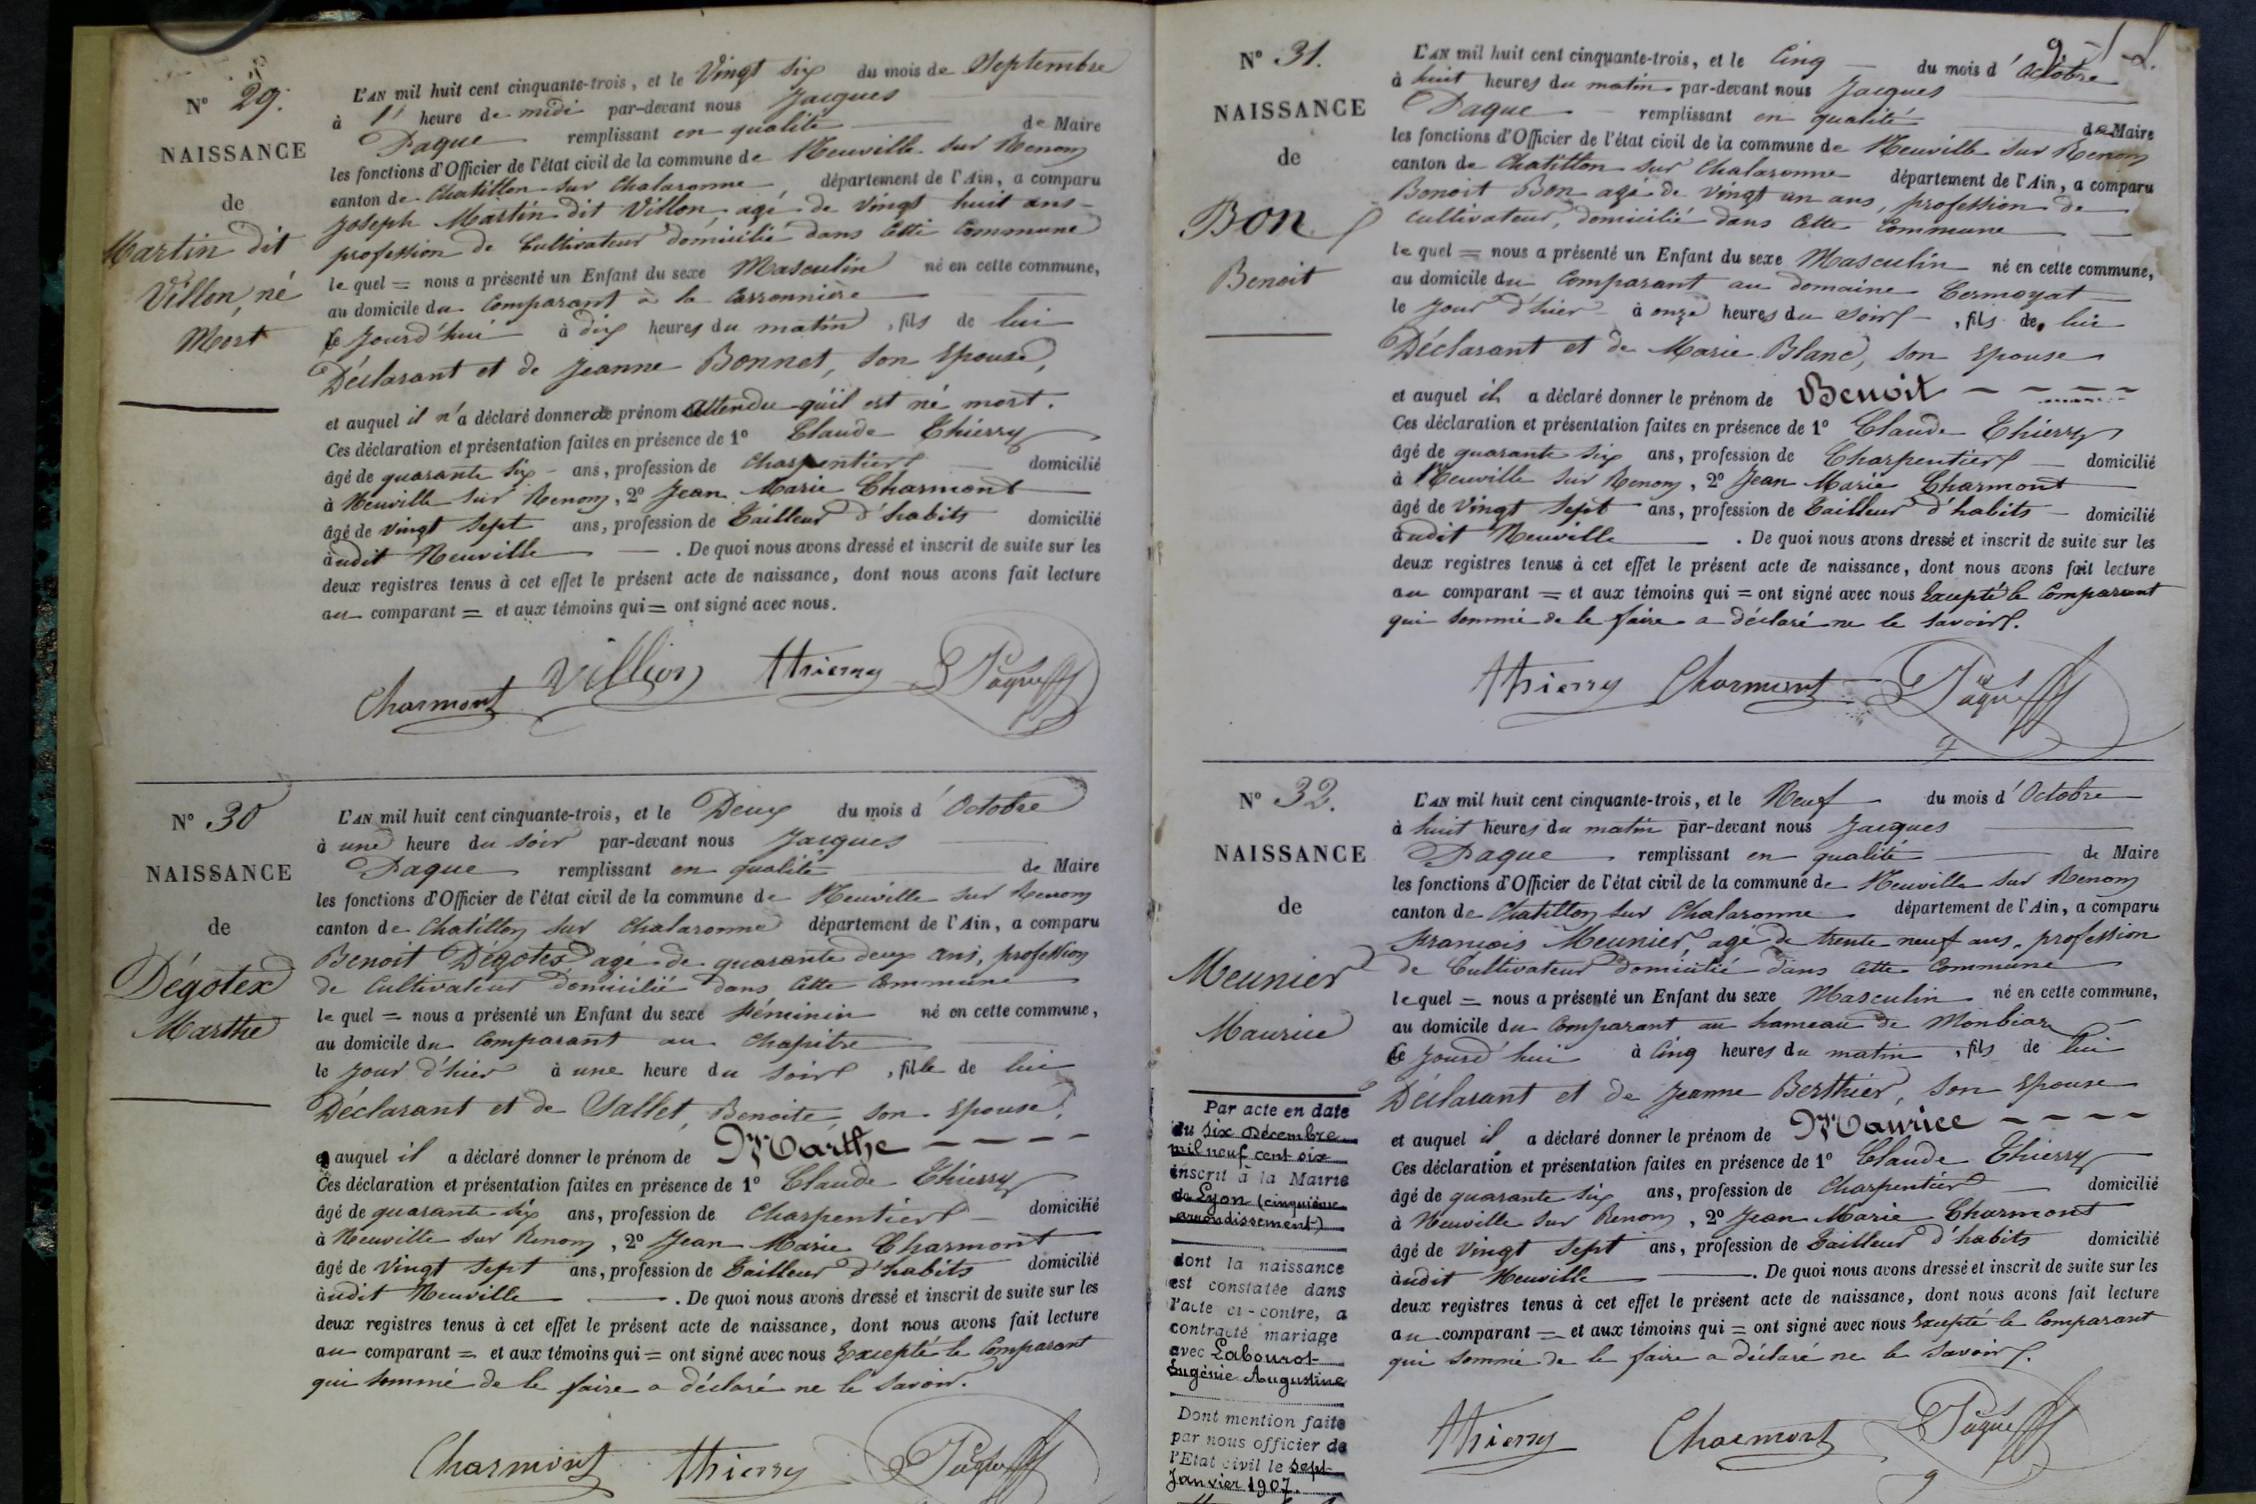 N° 29.
NAISSANCE
de
Martin dit
Villon, né
Mort
L'AN mil huit cent cinquante-trois, et le Vingt six du mois de Septembre
à 1' heure de midi par-devant nous Jacques
Paque remplissant en qualité de Maire
les fonctions d'Officier de l'état civil de la commune de Neuville sur Renom
canton de Chatillon sur Chalaronne, département de l'Ain, a comparu
Joseph Martin dit Villon, agé de vingt huit ans
profession de Cultivateur domicilié dans Cette Commune
le quel = nous a présenté un Enfant du sexe Masculin né en cette commune,
au domicile du Comparant à la Carronnière
Ce jourd'hui à dix heures du matin, fils de lui
Déclarant et de Jeanne Bonnet, son Epouse,
et auquel il n'a déclaré donner de prénom attendu qu'il est né mort.
Ces déclaration et présentation faites en présence de 1° Claude Thierry
âgé de quarante six ans, profession de Charpentier domicilié
à Neuville sur Renom, 2° Jean Marie Charmont
âgé de vingt sept ans, profession de Tailleur d'habits domicilié
audit Neuville. De quoi nous avons dressé et inscrit de suite sur les
deux registres tenus à cet effet le présent acte de naissance, dont nous avons fait lecture
au comparant = et aux témoins qui = ont signé avec nous.
Charmont Villion Thierry Pâque
N° 30
NAISSANCE
de
Dégotex
Marthe
L'AN mil huit cent cinquante-trois, et le Deux du mois d'Octobre
à une heure du soir par-devant nous Jacques
Paque remplissant en qualité de Maire
les fonctions d'Officier de l'état civil de la commune de Neuville sur Renom
canton de Chatillon sur Chalaronne département de l'Ain, a comparu
Benoit Dégotex agé de quarante deux ans, profession
de Cultivateur domicilié dans Cette Commune
le quel = nous a présenté un Enfant du sexe féminin né en cette commune,
au domicile du Comparant au Chapitre
le jour d'hier à une heure du soir, fille de lui
Déclarant et de Sallet, Benoite, son Epouse,
et auquel il a déclaré donner le prénom de Marthe
Ces déclaration et présentation faites en présence de 1° Claude Thierry
âgé de quarante six ans, profession de Charpentier domicilié
à Neuville sur Renom, 2° Jean Marie Charmont
âgé de vingt sept ans, profession de Tailleur d'habits domicilié
audit Neuville. De quoi nous avons dressé et inscrit de suite sur les
deux registres tenus à cet effet le présent acte de naissance, dont nous avons fait lecture
au comparant = et aux témoins qui = ont signé avec nous Excepté le Comparant
qui sommé de le faire a déclaré ne le savoir.
Charmont Thierry Pâque
N° 31.
NAISSANCE
de
Bon
Benoit
L'AN mil huit cent cinquante-trois, et le Cinq du mois d'Octobre
à huit heures du matin par-devant nous Jacques
Paque remplissant en qualité de Maire
les fonctions d'Officier de l'état civil de la commune de Neuville sur Renom
canton de Chatillon sur Chalaronne département de l'Ain, a comparu
Benoit Bon agé de vingt un ans, profession de
cultivateur, domicilié dans Cette Commune
le quel = nous a présenté un Enfant du sexe Masculin né en cette commune,
au domicile du Comparant au domaine Cermoyat
le jour d'hier à onze heures du soir, fils de lui
Déclarant et de Marie Blanc, son Epouse
et auquel il a déclaré donner le prénom de Benoit
Ces déclaration et présentation faites en présence de 1° Claude Thierry
âgé de quarante six ans, profession de Charpentier domicilié
à Neuville sur Renom, 2° Jean Marie Charmont
âgé de vingt sept ans, profession de Tailleur d'habits domicilié
audit Neuville. De quoi nous avons dressé et inscrit de suite sur les
deux registres tenus à cet effet le présent acte de naissance, dont nous avons fait lecture
au comparant = et aux témoins qui = ont signé avec nous Excepté le Comparant
qui sommé de le faire a déclaré ne le savoir.
Thierry Charmont Pâque
N° 32.
NAISSANCE
de
Meunier
Maurice
L'AN mil huit cent cinquante-trois, et le Neuf du mois d'Octobre
à huit heures du matin par-devant nous Jacques
Paque remplissant en qualité de Maire
les fonctions d'Officier de l'état civil de la commune de Neuville sur Renom
canton de Chatillon sur Chalaronne département de l'Ain, a comparu
francois Meunier, agé de trente neuf ans, profession
de Cultivateur domicilié dans Cette Commune
le quel = nous a présenté un Enfant du sexe Masculin né en cette commune,
au domicile du Comparant au hameau de Monbiar
Ce jourd'hui à Cinq heures du matin, fils de lui
Déclarant et de Jeanne Berthier, son Epouse
et auquel il a déclaré donner le prénom de Maurice
Ces déclaration et présentation faites en présence de 1° Claude Thierry
âgé de quarante six ans, profession de Charpentier domicilié
à Neuville sur Renom, 2° Jean Marie Charmont
âgé de vingt sept ans, profession de Tailleur d'habits domicilié
audit Neuville. De quoi nous avons dressé et inscrit de suite sur les
deux registres tenus à cet effet le présent acte de naissance, dont nous avons fait lecture
au comparant = et aux témoins qui = ont signé avec nous Excepté le Comparant
qui sommé de le faire a déclaré ne le savoir.
Thierry Charmont Pâque
Par acte en date
du six Décembre
mil neuf cent six
inscrit à la Mairie
de Lyon (cinquième
arrondissement)
dont la naissance
est constatée dans
l'acte ci-contre, a
contracté mariage
avec Labourot
Eugénie Augustine
Dont mention faite
par nous officier de
l'Etat civil le sept
Janvier 1907.